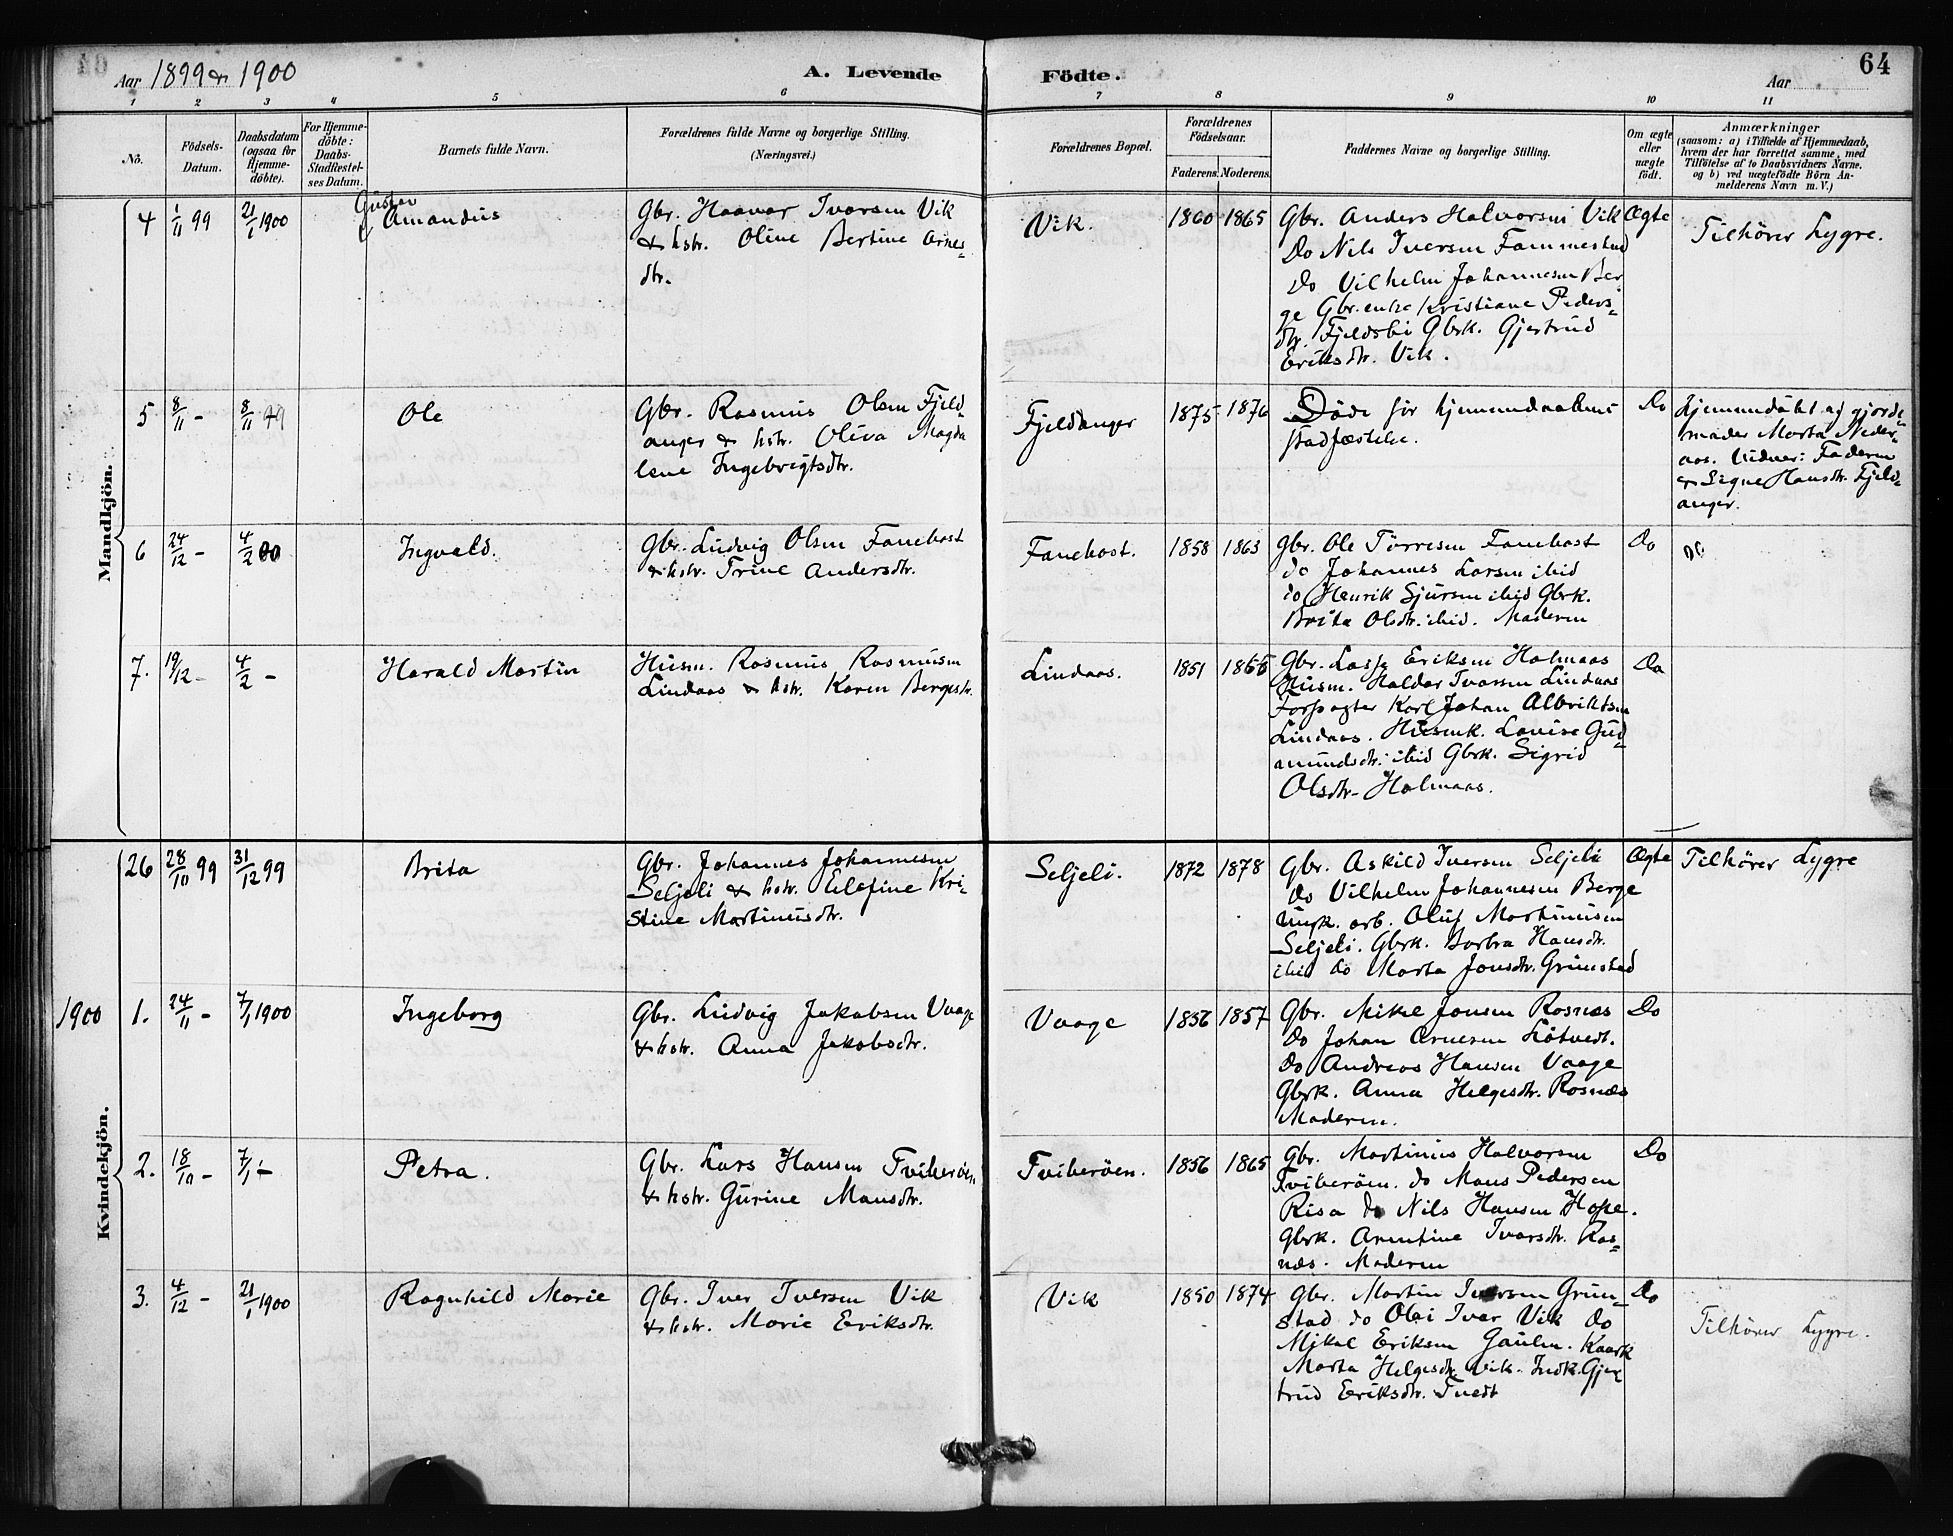 Aar 1899 & 1900
A. Levende
Födte.
Aar
64
1 2 3 4 5 6 7 8 9 10 11
No.
Födsels-
Datum.
Daabsdatum
(ogsaa for
Hjemme-
döbte).
For Hjemme-
döbte:
Daabs-
Stadfæstel-
ses Datum.
Barnets fulde Navn.
Forældrenes fulde Navne og borgerlige Stilling.
(Næringsvei.)
Forældrenes Bopæl.
Forældrenes
Födselsaar.
Faderens. Moderens.
Faddernes Navne og borgerlige Stilling.
Om ægte
eller
uægte
födt.
Anmærkninger
(saasom: a) i Tilfælde af Hjemmedaab,
hvem der har forrettet samme, med
Tilföielse af to Daabsvidners Navne,
og b) ved uægtefödte Börn An-
melderens Navn m. V.)
Mandkjön.
4
1/11 99
21/1 1900
Gustav
Amandus
Gbr. Haavar Ivarsen Vik
& hstr. Oline Bertine Arnes-
dtr.
Vik.
1860
1865
Gbr. Anders Halvorsen Vik
Do Nils Iversen Fammestad
Do Vilhelm Johannesen Ber
ge Gbr.enke Kristiane Peders-
dtr. Fjeldsbö Gbrk. Gjertrud
Eriksdtr. Vik.
Ægte
Tilhörer Lygre.
5
8/11 -
8/11 99
Ole
Gbr. Rasmus Olsen Fjeld-
anger & hstr. Oliva Magda
lene Ingebrigtsdtr.
Fjeldanger
1875
1876
Döde för hjemmedaabens
stadfæstelse.
Do
Hjemmedöbt af gjorde-
moder Marta Neder-
aas. Vidner: Faderen
& Signe Hansdtr. Fjeld-
anger.
6
24/12 -
4/2 00
Ingvald.
Gbr. Ludvig Olsen Fanebost
& hstr. Trine Andersdtr.
Fanebost.
1858
1863
Gbr. Ole Törresen Fanebost
do Johannes Larsen ibid
do Henrik Sjursen ibid Gbrk.
Brita Olsdtr. ibid. Moderen
Do
7.
19/12 -
4/2 -
Harald Martin
Husm. Rasmus Rasmusen
Lindaas & hstr. Karen Bergesdtr.
Lindaas.
1851
1856
Gbr. Lasse Eriksen Halmaas
Husm. Haldor Ivarsen Lindaas
Forpagter Karl Johan Albriktsen
Lindaas. Husmk. Lovise Gud-
amundsdtr. ibid Gbrk. Sigrid
Olsdtr. Halmaas.
Do
Kvindekjön.
26
28/10 99
31/12 99
Brita
Gbr. Johannes Johannesen
Seljeli & hstr. Elefine Kri-
stine Martinusdtr.
Seljeli.
1872
1878
Gbr. Askild Iversen Seljeli
Do Vilhelm Johannesen Berge
Ungk. arb. Oluf Martinusen
Seljeli. Gbrk. Barbra Hansdtr.
ibid do Marta Jonsdtr. Grimstad
Ægte
Tilhörer Lygre
1900
1.
24/11 -
7/1 1900
Ingeborg
Gbr. Ludvig Jakobsen Vaage
& hstr. Anna Jakobsdtr.
Vaage
1856
1857
Gbr. Mikal Jonsen Rosnæs
Do Johan Arnesen Lötvedt.
Do Andreas Hansen Vaage
Gbrk. Anna Helgesdtr. Rosnæs
Moderen.
Do
2.
18/10 -
7/1 -
Petra.
Gbr. Lars Hansen Tviberöen
& hstr. Gurine Monsdtr.
Tviberöen.
1856
1865
Gbr. Martinus Halvorsen
Tviberöen. do Mons Pedersen
Risa do Nils Hansen Hope.
Gbrk. Arentine Ivarsdtr. Ros-
næs. Moderen
Do
3.
4/12 -
21/1 1900
Ragnhild Marie
Gbr. Iver Iversen Vik
& hstr. Marie Eriksdtr.
Vik
1850
1874
Gbr. Martin Iversen Grim-
stad do Ole Iver Vik do
Mikal Eriksen Gaulen. Kaark
Marta Helgesdtr. Vik. Indk. Gjer
trud Eriksdtr. Tvedt
Do
Tilhörer Lygre.